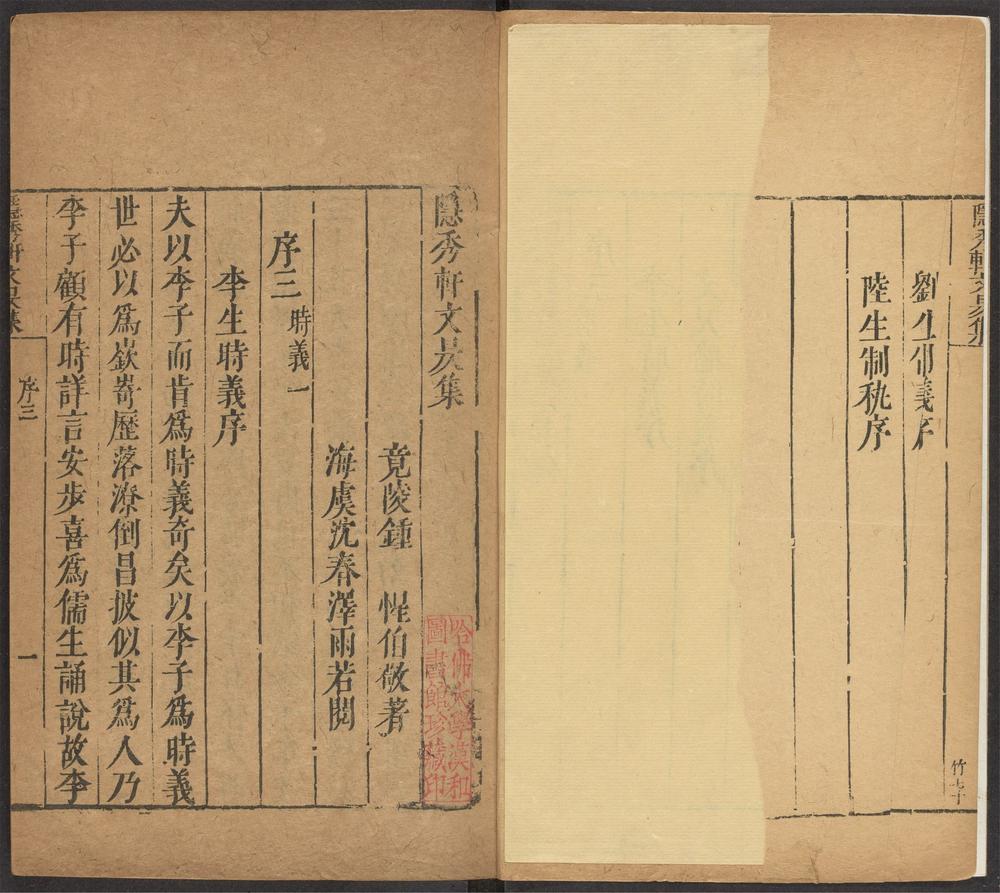 隱秀軒文昃集
劉生時義序
陸生制秇序
竹七十
隱秀軒文昃集
竟陵鍾 惺伯敬著
海虞沈春澤雨若閱
序三 時義一
李生時義序
夫以李子而肯爲時義奇矣以李子爲時義
世必以爲嶔嵜歷落潦倒昌披似其爲人乃
李子顧有時詳言安步喜爲儒生誦說故李
隱秀軒文昃集
序三
一
哈佛大學漢和
圖書館珍藏印